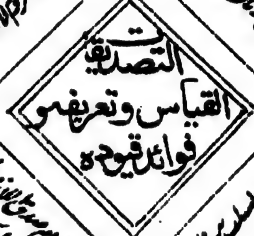 التصديقات
القياس وتعريفه و
فوائد قيوده